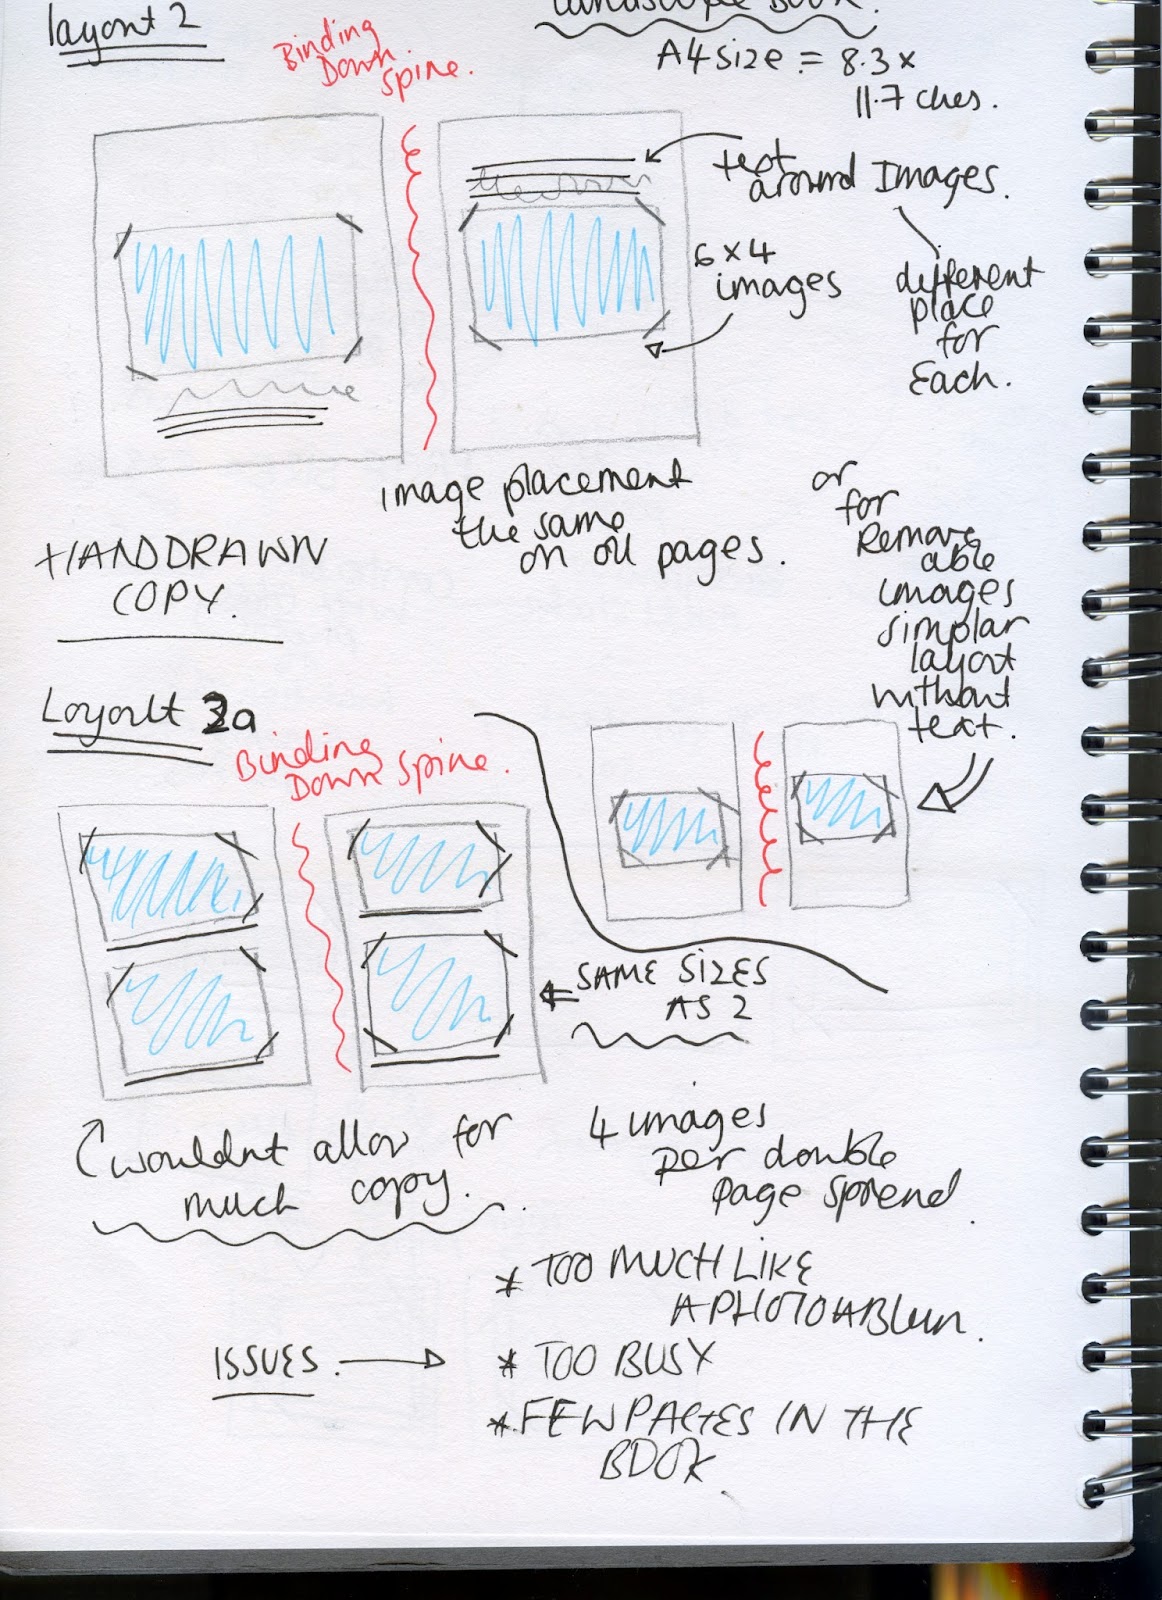 layout 2
Landscape Book.
A4 size = 8.3 x
11.7 ches.
Binding
Down
Spine.
text
around Images.
6 x 4
images
different
place
for
Each.
image placement
the same
on all pages.
HANDDRAWN
COPY.
or
for
Remove
able
images
simplar
layout
without
text.
Layout 2a
Binding
Down Spine.
SAME SIZES
AS 2
wouldnt allow for
much copy.
4 images
per double
page spread.
* TOO MUCH LIKE
A PHOTO ABLum.
ISSUES.
* TOO BUSY
* FEW PAGES IN THE
BOOK